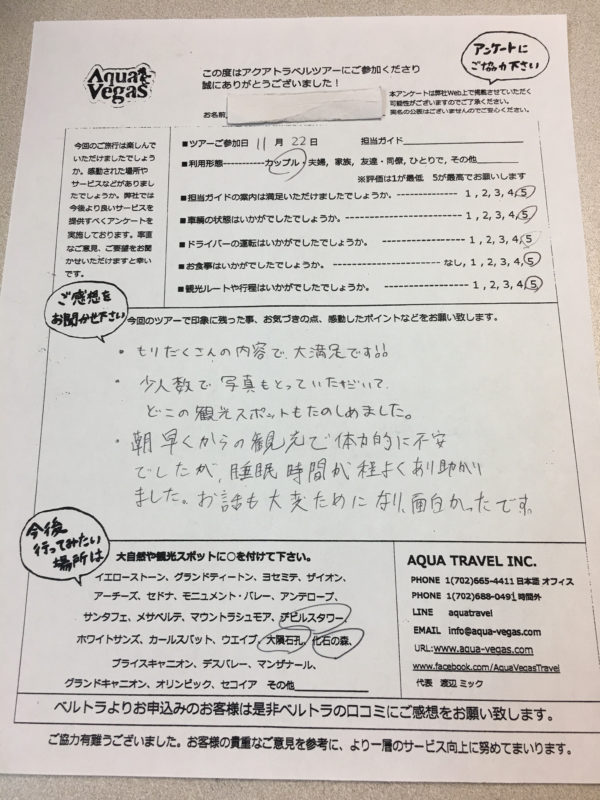 Aqua
Vegas
この度はアクアトラベルツアーにご参加くださり
誠にありがとうございました！
アンケートに
ご協力下さい
本アンケートは弊社Web上で掲載させていただく
可能性がございますのでご了承ください。
実名の公表はございませんのでご安心ください。
お名前
今回のご旅行は楽しんで
いただけましたでしょう
か。感動された場所や
サービスなどがありまし
たでしょうか。弊社では
今後より良いサービスを
提供すべくアンケートを
実施しております。率直
なご意見、ご要望をお聞
かせいただけますと幸い
です。
■ツアーご参加日 11月 22日 担当ガイド
■利用形態-----------カップル・夫婦, 家族, 友達・同僚, ひとりで, その他
※評価は1が最低 5が最高でお願いします
■担当ガイドの案内は満足いただけましたでしょうか。---------------- 1, 2, 3, 4, 5
■車輌の状態はいかがでしたでしょうか。---------------------------- 1, 2, 3, 4, 5
■ドライバーの運転はいかがでしたでしょうか。 -------------------- 1, 2, 3, 4, 5
■お食事はいかがでしたでしょうか。-------------------------- なし, 1, 2, 3, 4, 5
■観光ルートや行程はいかがでしたでしょうか。-------------------- 1, 2, 3, 4, 5
ご感想を
お聞かせ下さい
今回のツアーで印象に残った事、お気づきの点、感動したポイントなどをお願い致します。
・もりだくさんの内容で、大満足です!!
・少人数で写真もとっていただいて、
どこの観光スポットもたのしめました。
・朝早くからの観光で体力的に不安
でしたが、睡眠時間が程よくあり助かり
ました。お話も大変ためになり、面白かったです。
今後
行ってみたい
場所は
大自然や観光スポットに○を付けて下さい。
イエローストーン、グランドティートン、ヨセミテ、ザイオン、
アーチーズ、セドナ、モニュメント・バレー、アンテロープ、
サンタフェ、メサベルテ、マウントラシュモア、デビルスタワー、
ホワイトサンズ、カールスバット、ウエイブ、大隕石孔、化石の森、
ブライスキャニオン、デスバレー、マンザナール、
グランドキャニオン、オリンピック、セコイア その他
AQUA TRAVEL INC.
PHONE 1(702)665-4411 日本語 オフィス
PHONE 1(702)688-0491 時間外
LINE aquatravel
EMAIL info@aqua-vegas.com
URL: www.aqua-vegas.com
www.facebook.com/AquaVegasTravel
代表 渡辺 ミック
ベルトラよりお申込みのお客様は是非ベルトラの口コミにご感想をお願い致します。
ご協力有難うございました。お客様の貴重なご意見を参考に、より一層のサービス向上に努めてまいります。